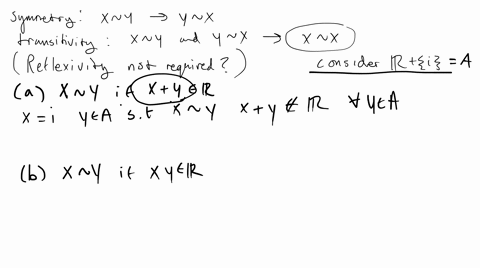 symmetry: x~y → y~x
transitivity: x~y and y~x → x~x
(Reflexivity not required?) consider ℝ+{i} = A
(a) x~y if x+y ∈ ℝ
x=i y∈A s.t x~y x+y ∉ ℝ ∀y∈A
(b) x~y if xy∈ℝ